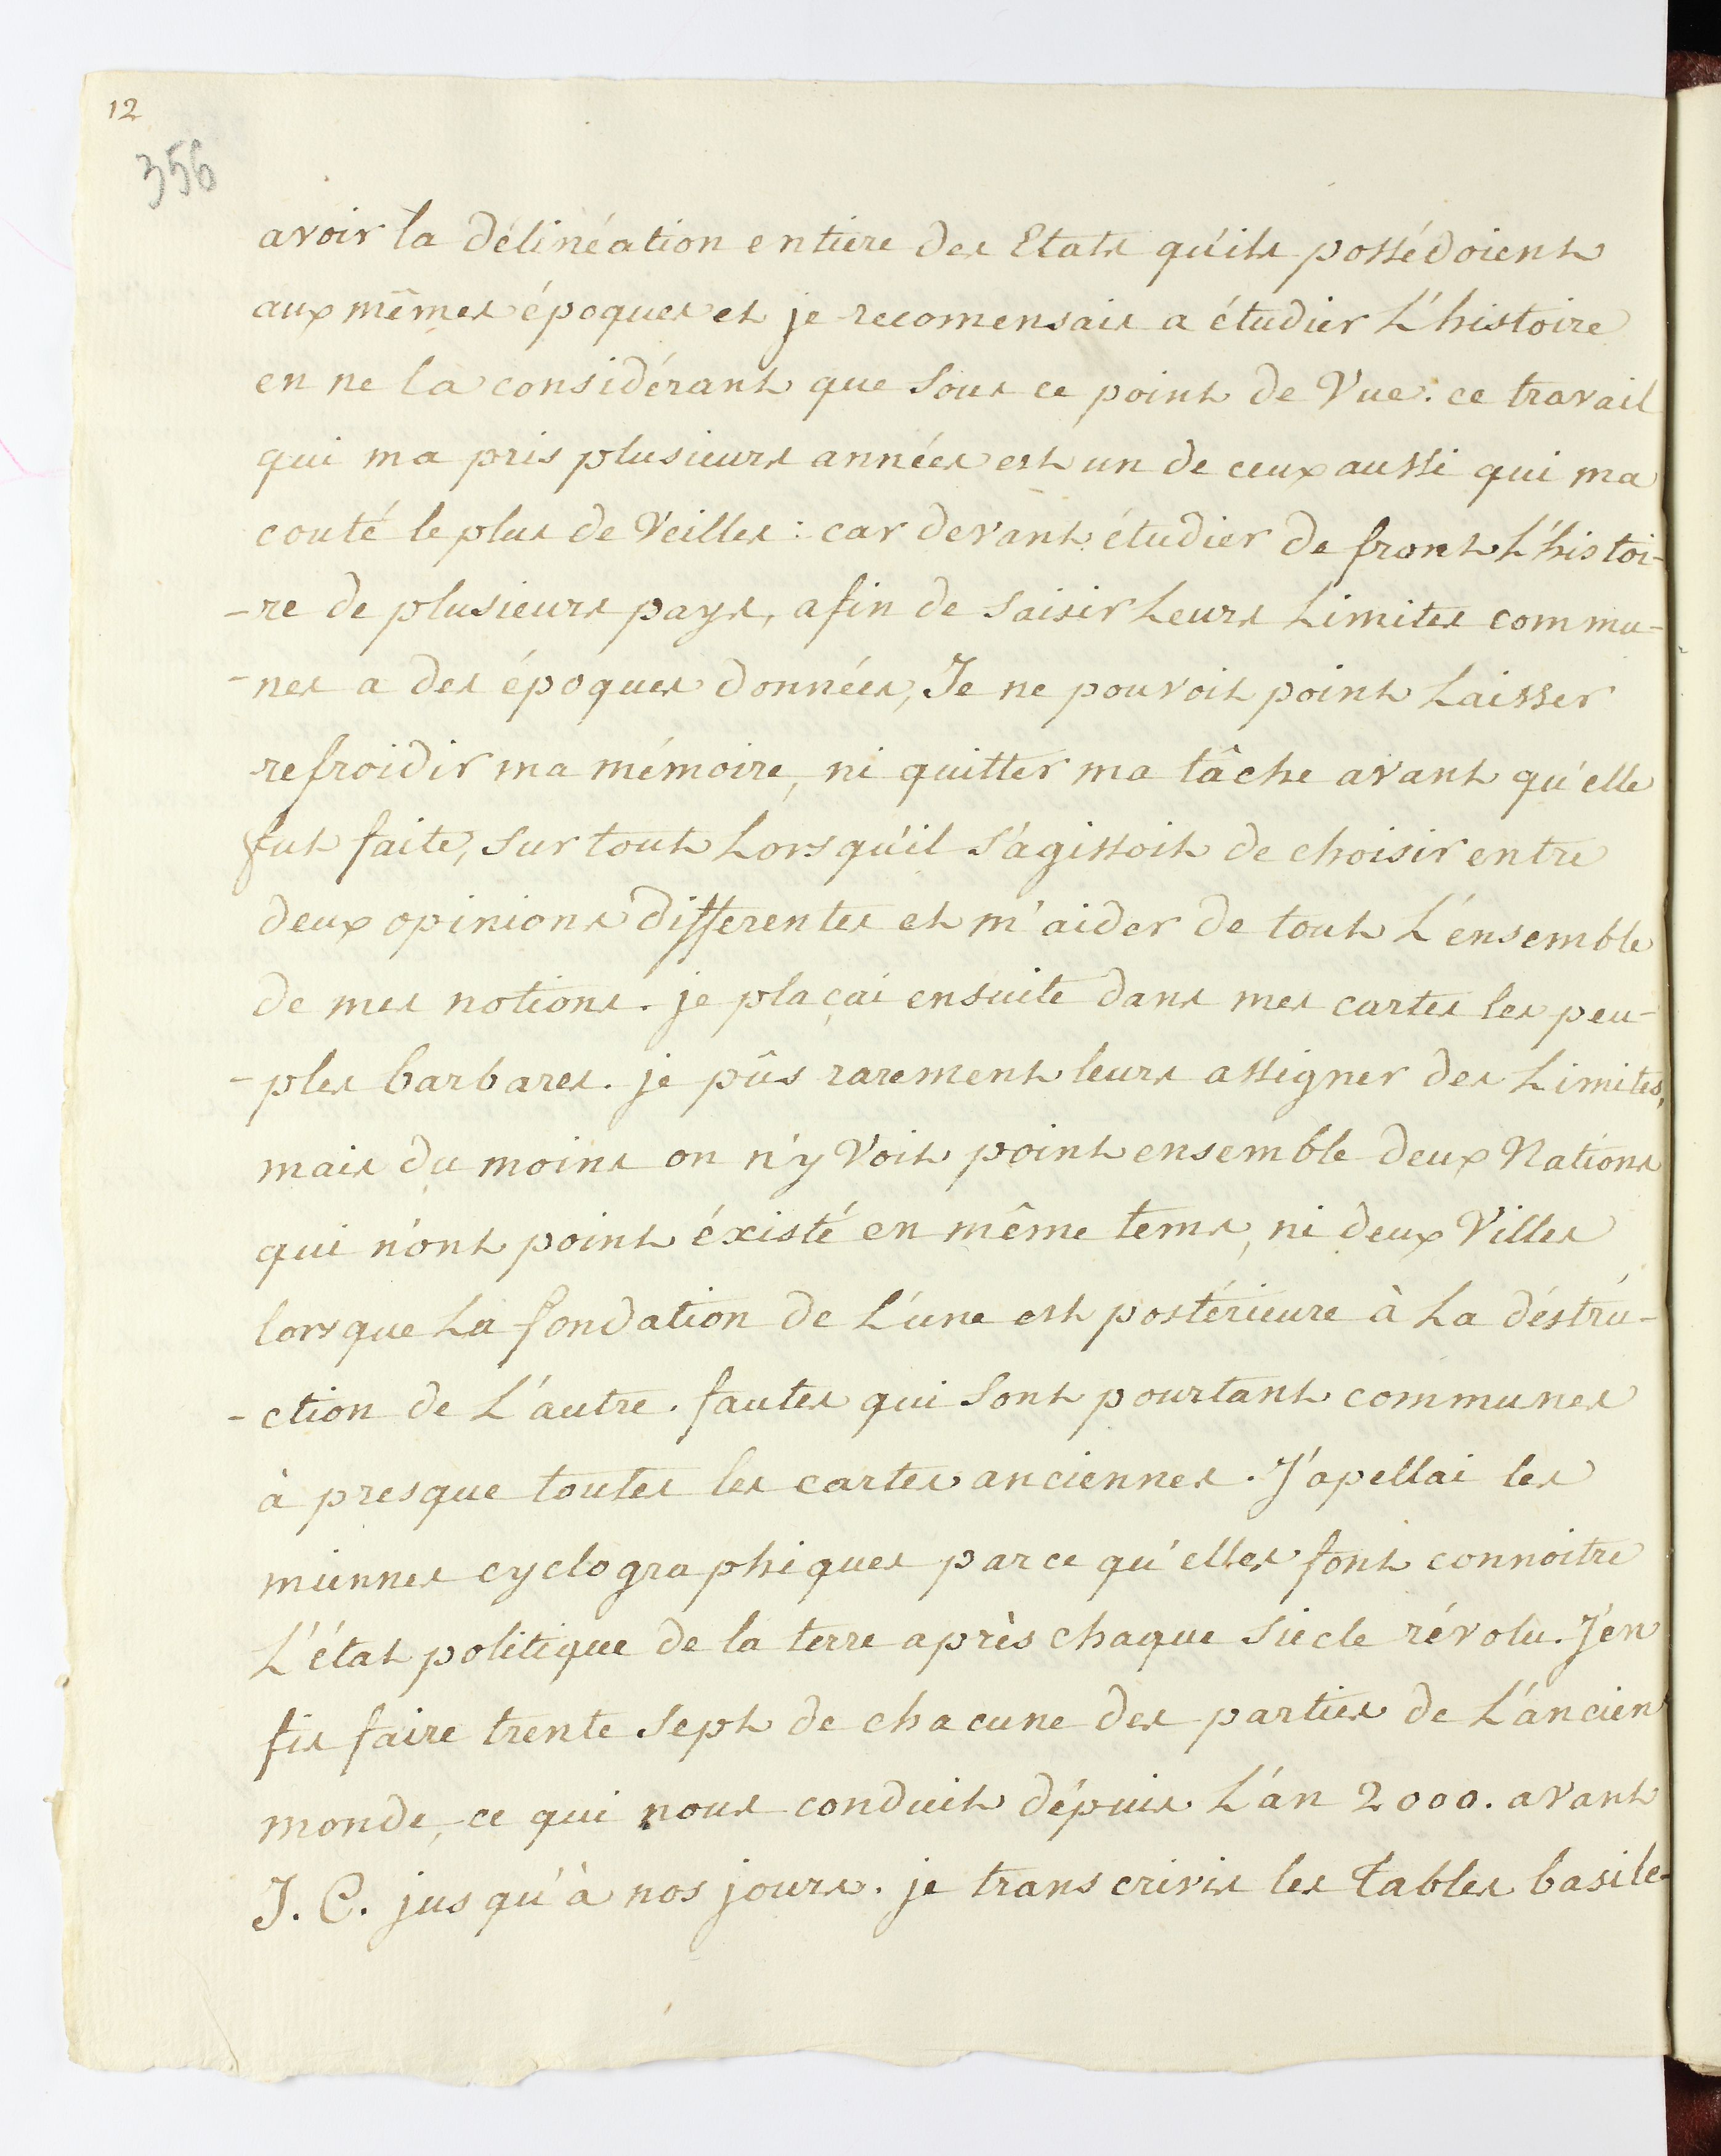 12
356
avoir la délinéation entiere des Etats qu'ils possédoient
aux mêmes époques et je recomensais a étudier L'histoire
en ne la considérant que sous ce point de Vue. ce travail
qui ma pris plusieurs années est un de ceux aussi qui ma
couté le plus de Veilles : car devant étudier de front L'histoi-
-re de plusieurs pays, afin de saisir Leurs Limites commu-
-nes a des époques données, Je ne pouvoit point Laisser
refroidir ma mémoire, ni quitter ma tâche avant qu'elle
fut faite, sur tout Lorsqu'il s'agissoit de choisir entre
deux opinions differentes et m'aider de tout L'ensemble
de mes notions. je plaçai ensuite dans mes cartes les peu-
-ples barbares. je pûs rarement leurs assigner des Limites,
mais du moins on n'y Voit point ensemble deux Nations
qui n'ont point éxisté en même tems, ni deux Villes
lorsque La fondation de L'une est postérieure à La déstru-
-ction de L'autre. fautes qui sont pourtant communes
à presque toutes les cartes anciennes. J'apellai les
miennes cyclographiques parce qu'elles font connoitre
L'état politique de la terre après chaque siecle révolu. J'en
fis faire trente sept de chacune des parties de L'ancien
monde, ce qui nous conduit dépuis L'an 2000. avant
J. C. jusqu'à nos jours. je transcrivis les tables basile-